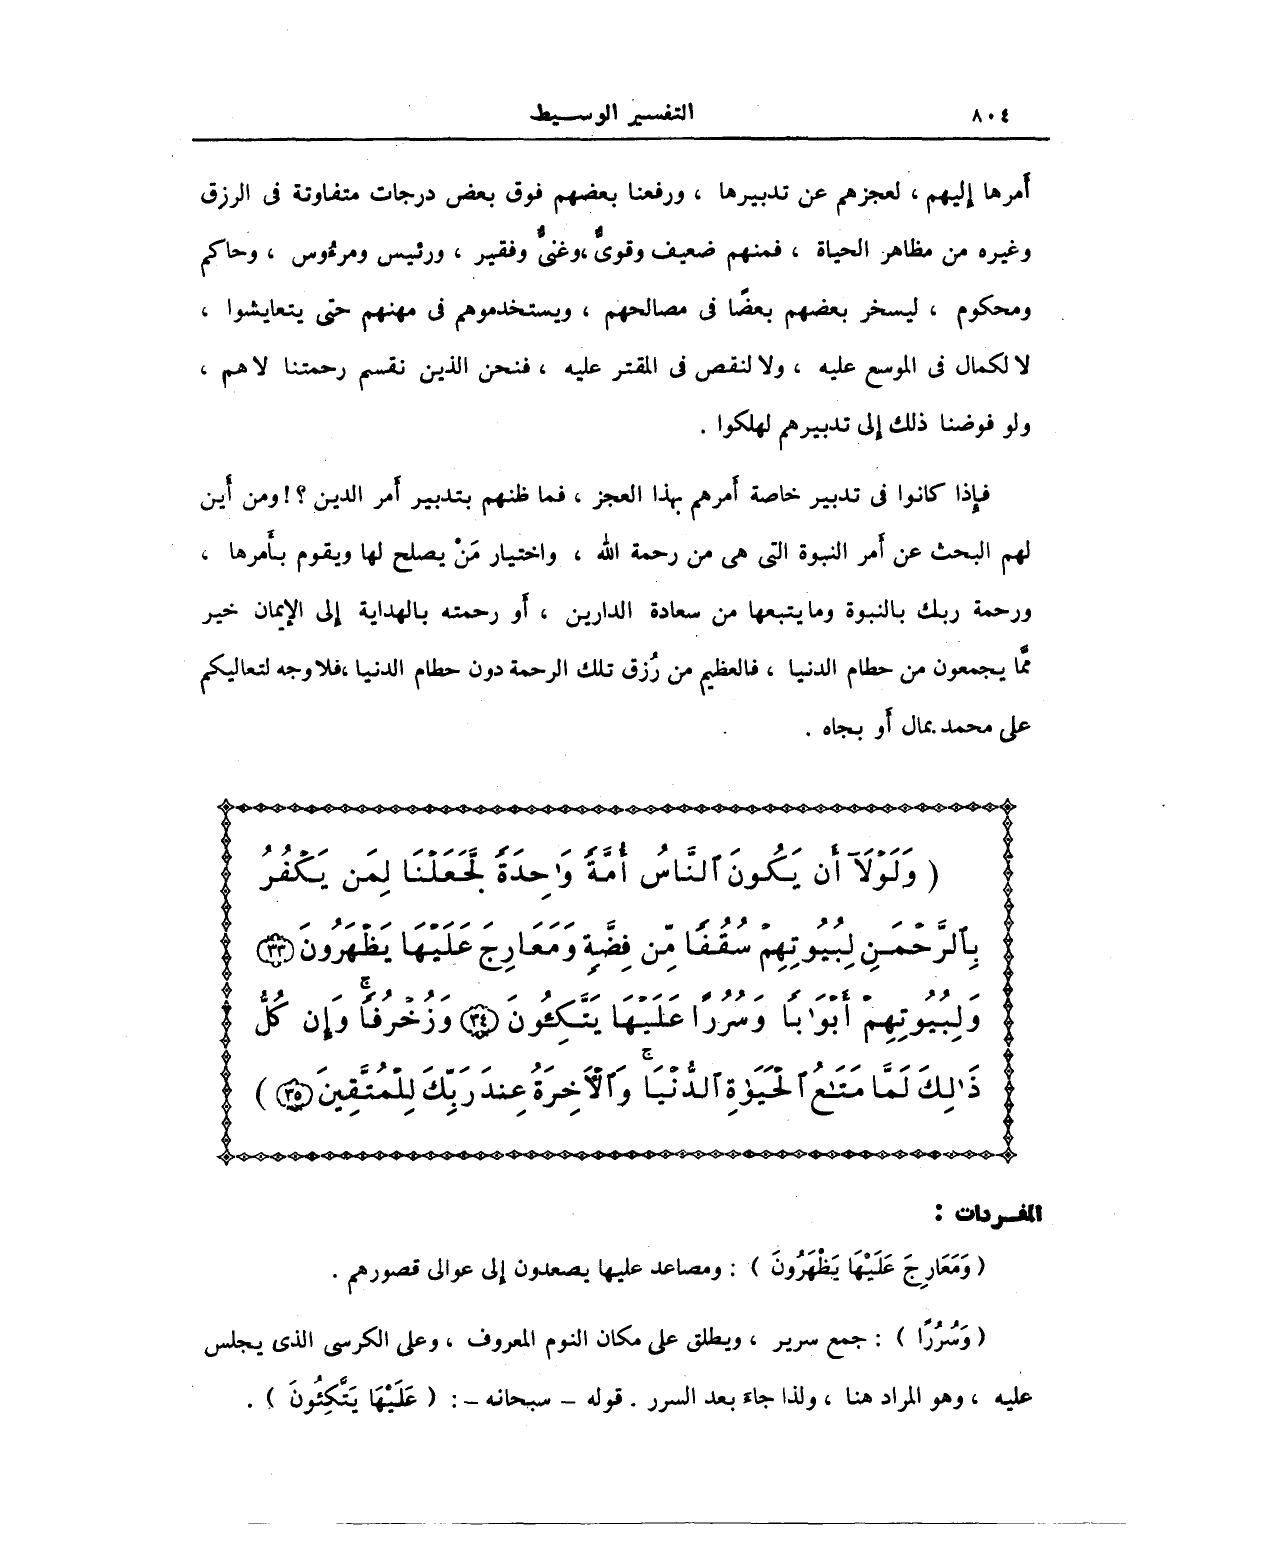 ٨٠٤ التفسير الوسيط
أمرها إليهم ، لعجزهم عن تدبيرها ، ورفعنا بعضهم فوق بعض درجات متفاوتة فى الرزق
وغيره من مظاهر الحياة ، فمنهم ضعيف وقوىٌّ ،وغنىٌّ وفقير ، ورئيس ومرءُوس ، وحاكم
ومحكوم ، ليسخر بعضهم بعضًا فى مصالحهم ، ويستخدموهم فى مهنهم حتى يتعايشوا ،
لا لكمال فى الموسع عليه ، ولا لنقص فى المقتر عليه ، فنحن الذين نقسم رحمتنا لا هم ،
ولو فوضنا ذلك إلى تدبيرهم لهلكوا .
فإذا كانوا فى تدبير خاصة أمرهم بهذا العجز ، فما ظنهم بتدبير أمر الدين ؟ ! ومن أين
لهم البحث عن أمر النبوة التى هى من رحمة الله ، واختيار مَنْ يصلح لها ويقوم بأمرها ،
ورحمة ربك بالنبوة وما يتبعها من سعادة الدارين ، أو رحمته بالهداية إلى الإيمان خير
ممَّا يجمعون من حطام الدنيا ، فالعظيم من رُزق تلك الرحمة دون حطام الدنيا ،فلا وجه لتعاليكم
على محمد بمال أو بجاه .
( وَلَوْلَآ أَن يَكُونَ ٱلنَّاسُ أُمَّةً وَٰحِدَةً لَّجَعَلْنَا لِمَن يَكْفُرُ
بِٱلرَّحْمَـٰنِ لِبُيُوتِهِمْ سُقُفًا مِّن فِضَّةٍ وَمَعَارِجَ عَلَيْهَا يَظْهَرُونَ ﴿٣٣﴾
وَلِبُيُوتِهِمْ أَبْوَٰبًا وَسُرُرًا عَلَيْهَا يَتَّكِئُونَ ﴿٣٤﴾ وَزُخْرُفًا ۚ وَإِن كُلُّ
ذَٰلِكَ لَمَّا مَتَـٰعُ ٱلْحَيَوٰةِ ٱلدُّنْيَا ۚ وَٱلْأَخِرَةُ عِندَ رَبِّكَ لِلْمُتَّقِينَ ﴿٣٥﴾ )
المفـردات :
( وَمَعَارِجَ عَلَيْهَا يَظْهَرُونَ ) : ومصاعد عليها يصعدون إلى عوالى قصورهم .
( وَسُرُرًا ) : جمع سرير ، ويطلق على مكان النوم المعروف ، وعلى الكرسى الذى يجلس
عليه ، وهو المراد هنا ، ولذا جاءَ بعد السرر . قوله – سبحانه – : ( عَلَيْهَا يَتَّكِئُونَ ) .